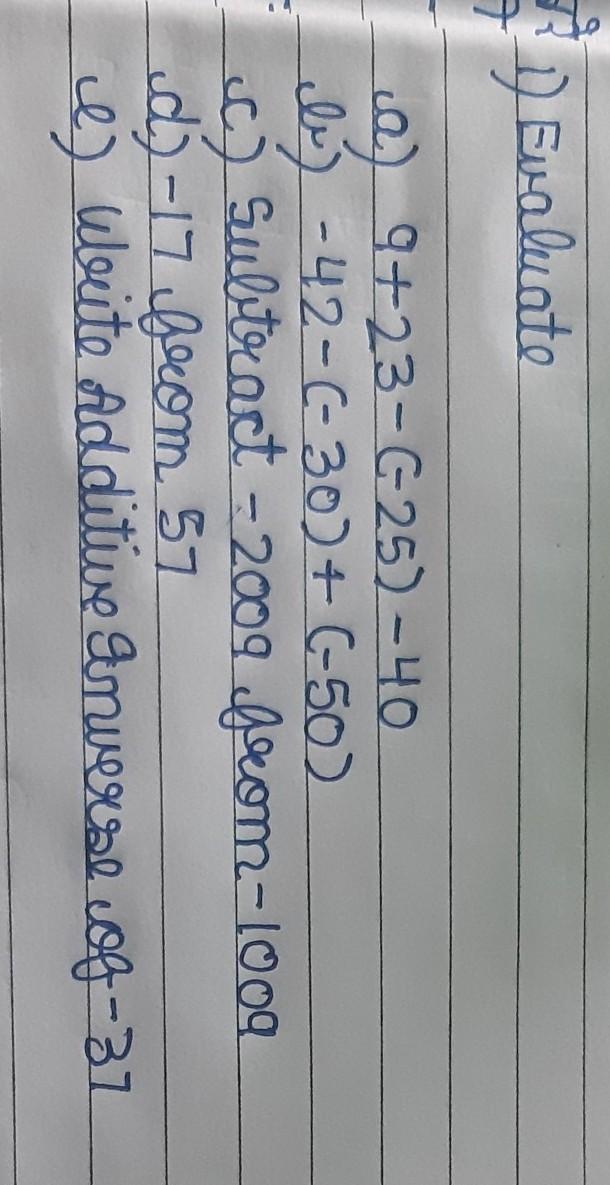 1) Evaluate
a) 9+23-(-25)-40
b) -42-(-30)+(-50)
c) Subtract -2009 from -1009
d) -17 from 57
e) Write Additive Inverse of -37